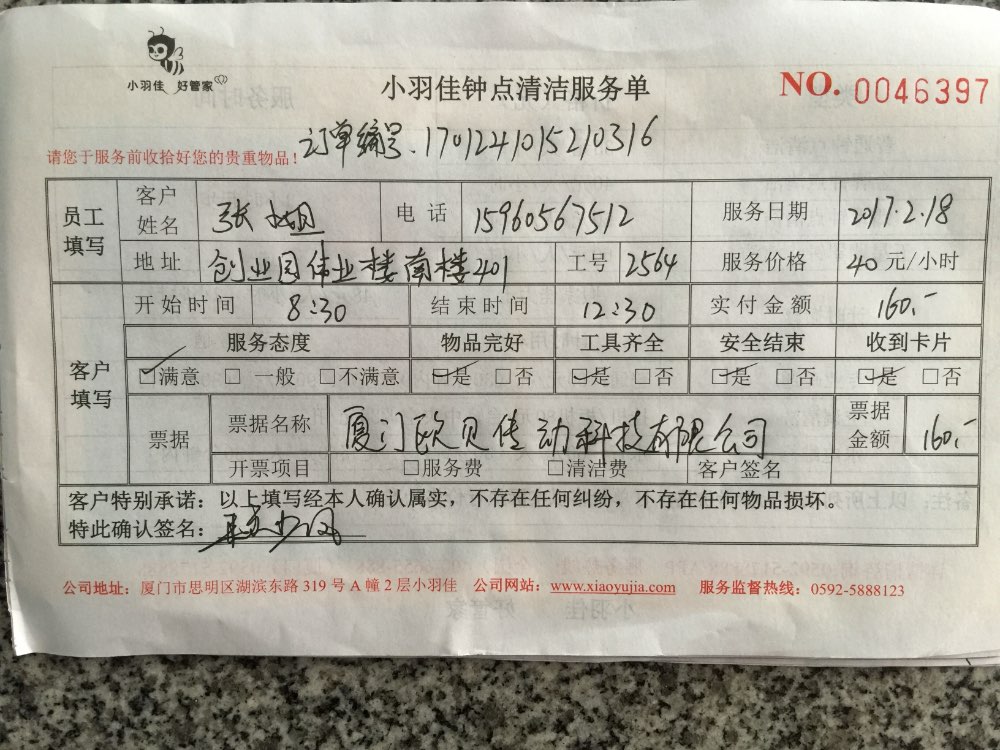 小羽佳 好管家
小羽佳钟点清洁服务单
NO. 0046397
订单编号.1701241015210316
请您于服务前收拾好您的贵重物品！
员工填写 客户姓名 张 电话 15960567512 服务日期 2017.2.18
地址 创业园伟业楼南楼401 工号 2564 服务价格 40元/小时
开始时间 8:30 结束时间 12:30 实付金额 160.-
客户填写 服务态度 物品完好 工具齐全 安全结束 收到卡片
☑满意 □一般 □不满意 ☑是 □否 ☑是 □否 ☑是 □否 ☑是 □否
票据 票据名称 厦门欧贝传动科技有限公司 票据金额 160.-
开票项目 □服务费 □清洁费 客户签名
客户特别承诺：以上填写经本人确认属实，不存在任何纠纷，不存在任何物品损坏。
特此确认签名：
公司地址：厦门市思明区湖滨东路 319 号 A 幢 2 层小羽佳 公司网站：www.xiaoyujia.com 服务监督热线：0592-5888123